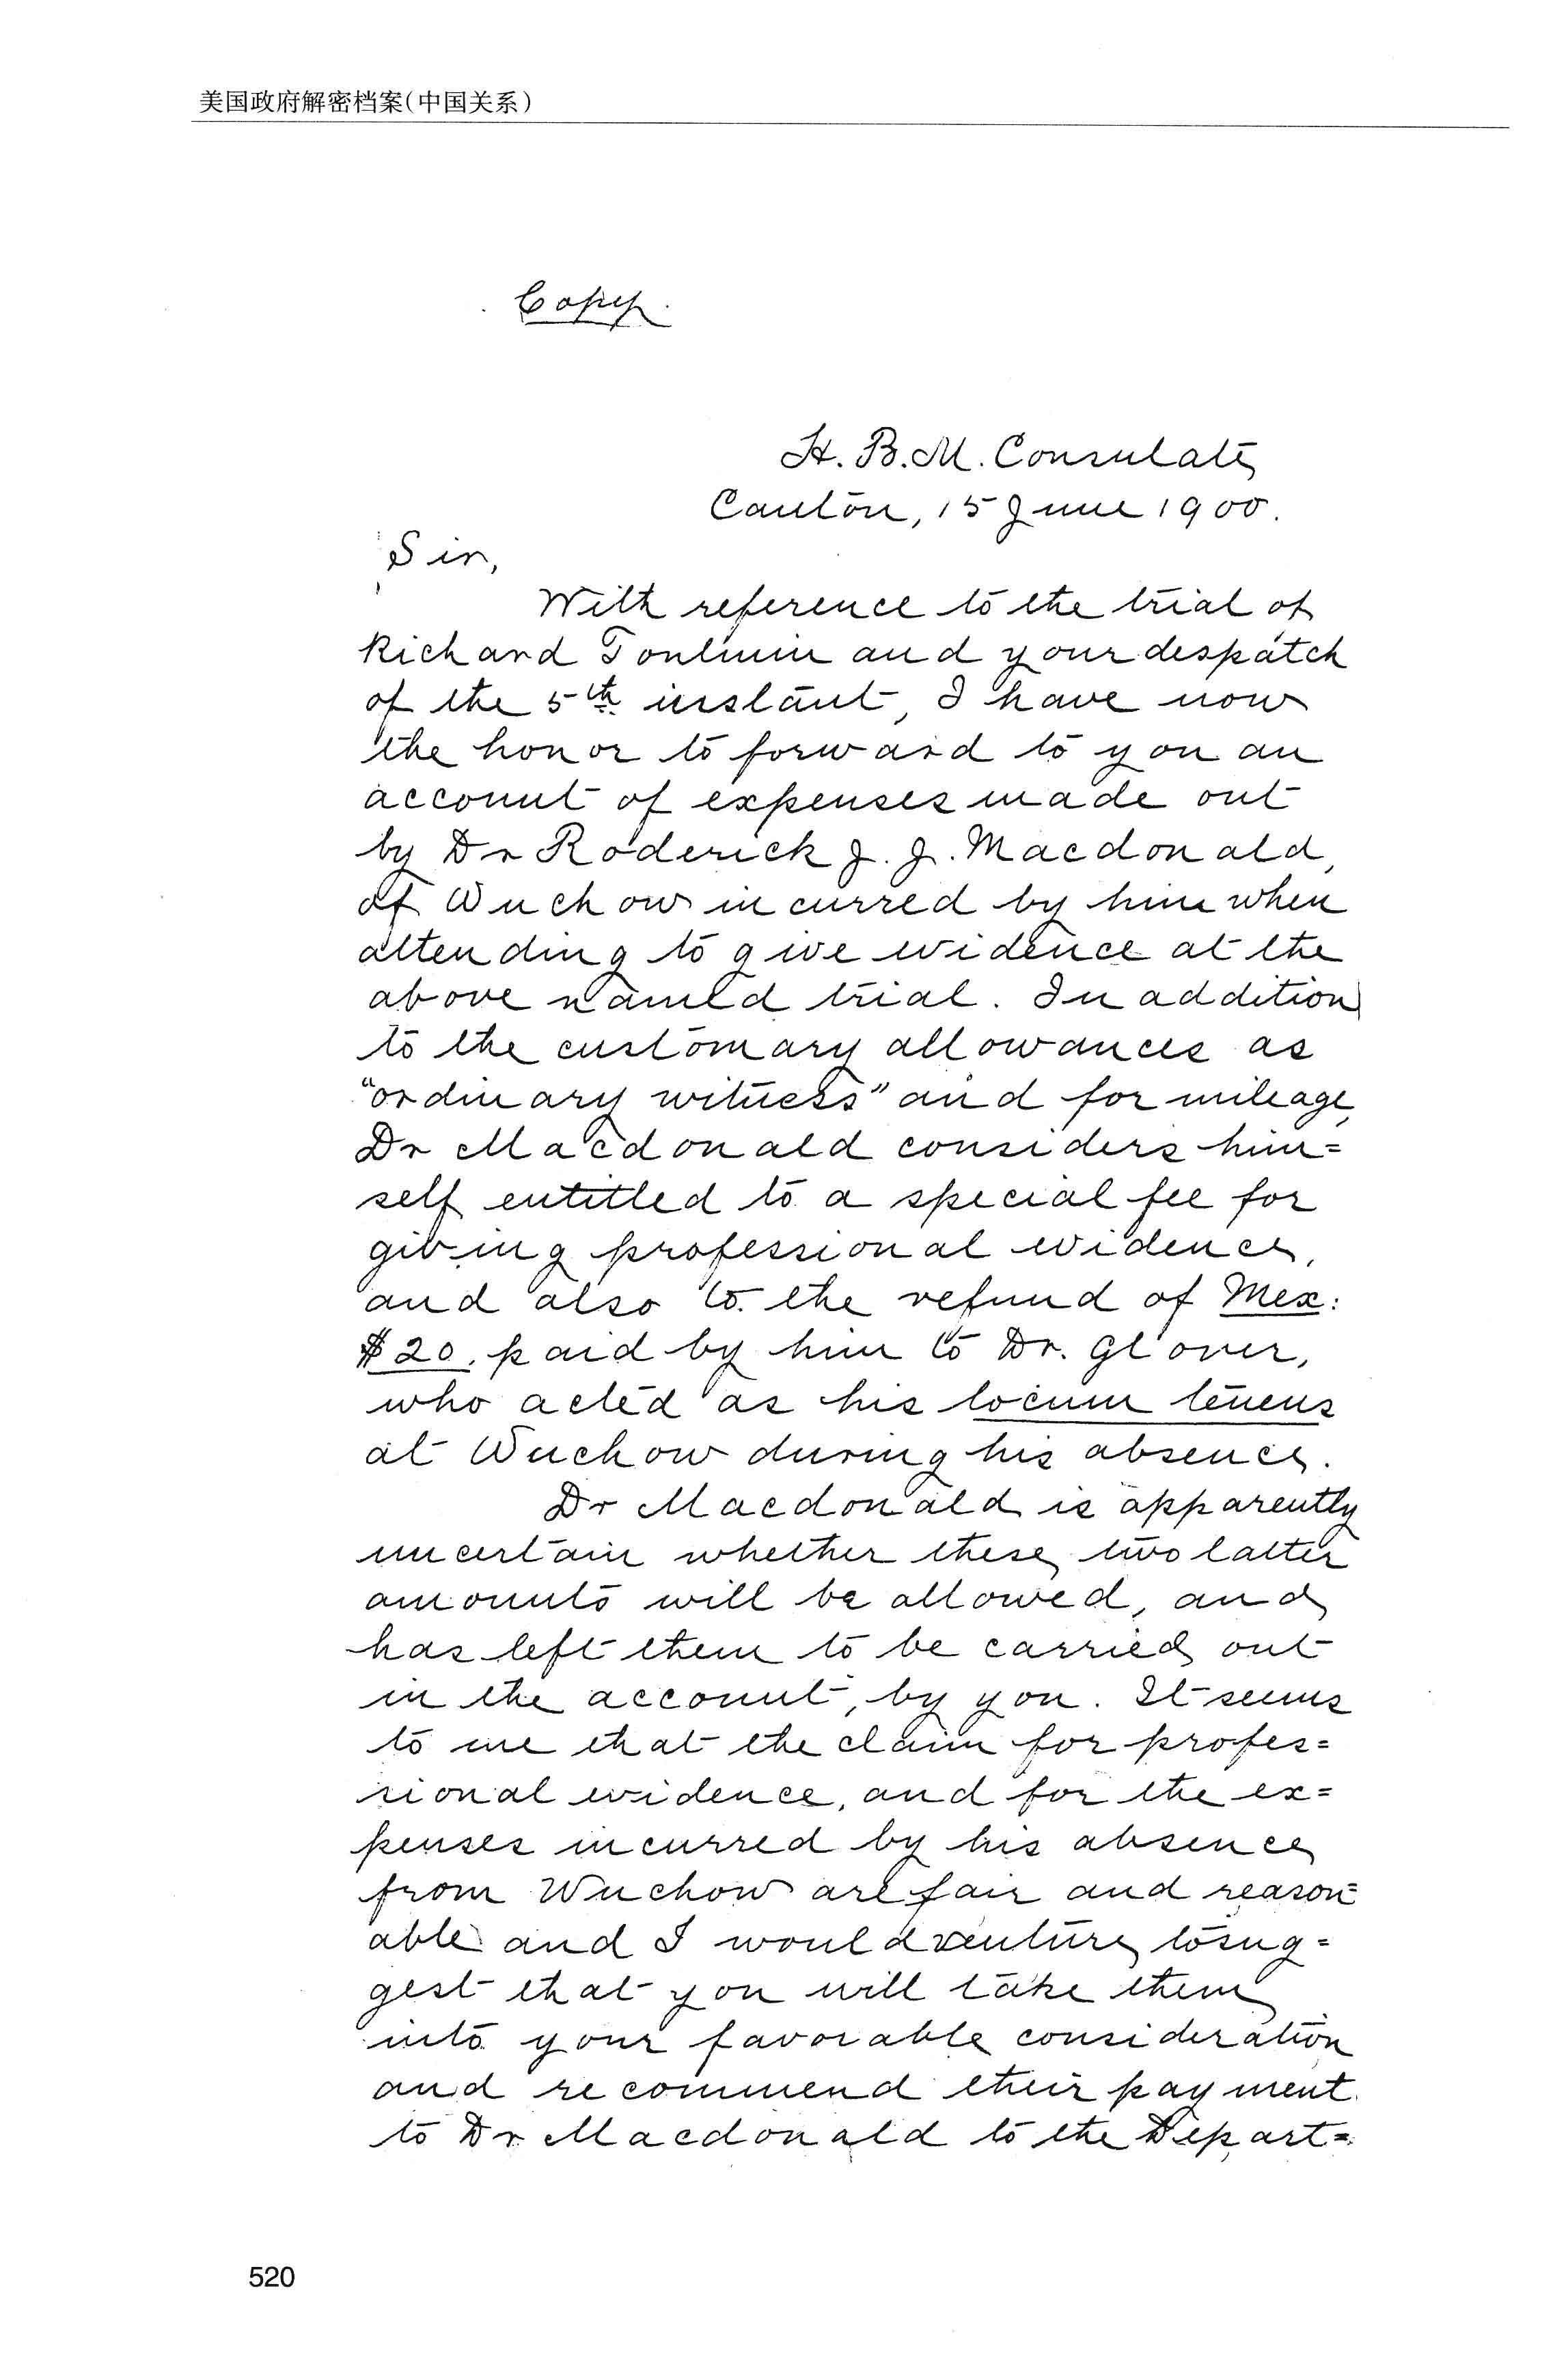 美国政府解密档案(中国关系)
Copy.
H. B. M. Consulate,
Canton, 15 June 1900.
Sir,
With reference to the trial of
Richard Toulmin and your despatch
of the 5th instant, I have now
the honor to forward to you an
account of expenses made out
by Dr Roderick J. J. Macdonald,
of Wuchow incurred by him when
attending to give evidence at the
above named trial. In addition
to the customary allowances as
"ordinary witness" and for mileage,
Dr Macdonald considers him=
self entitled to a special fee for
giving professional evidence,
and also to the refund of Mex:
$20. paid by him to Dr. Glover,
who acted as his locum tenens
at Wuchow during his absence.
Dr Macdonald is apparently
uncertain whether these two latter
amounts will be allowed, and
has left them to be carried out
in the account, by you. It seems
to me that the claim for profes=
sional evidence, and for the ex=
penses incurred by his absence
from Wuchow are fair and reason=
able and I would venture to sug=
gest that you will take them
into your favorable consideration
and recommend their payment
to Dr Macdonald to the Depart=
520